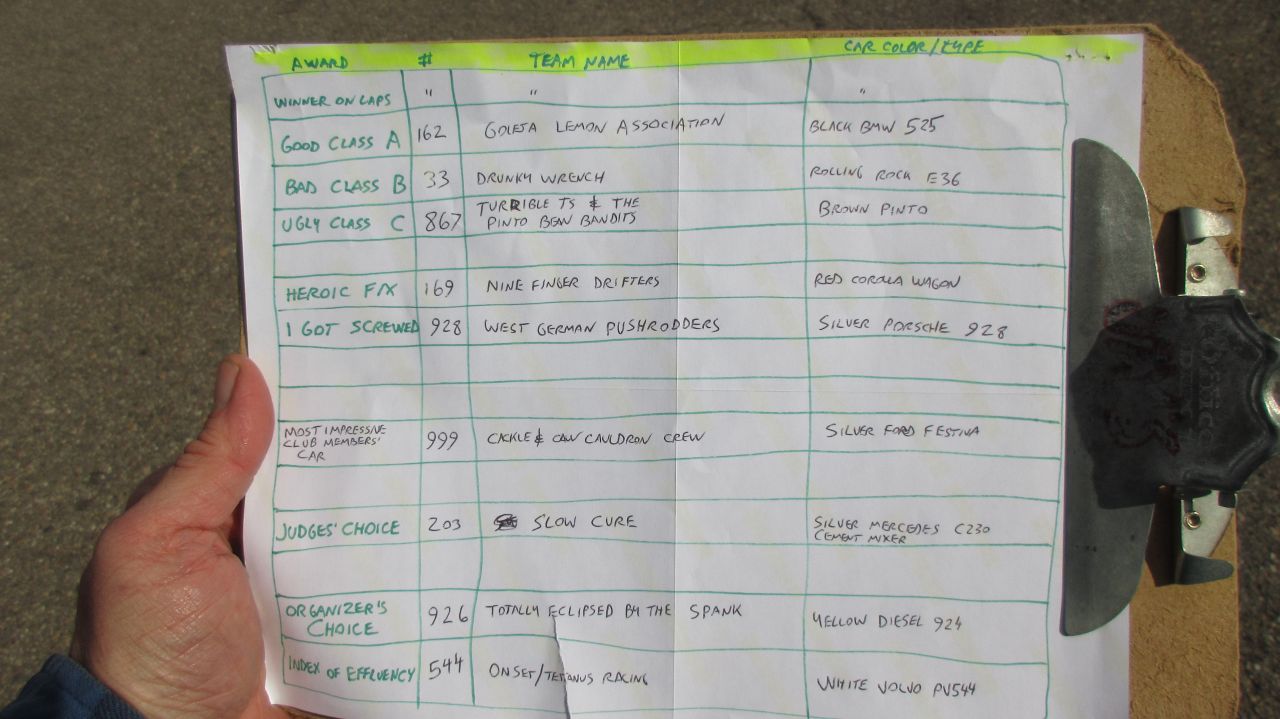 AWARD # TEAM NAME CAR COLOR/TYPE
WINNER ON LAPS " " "
GOOD CLASS A 162 GOLETA LEMON ASSOCIATION BLACK BMW 525
BAD CLASS B 33 DRUNKY WRENCH ROLLING ROCK E36
UGLY CLASS C 867 TURRIBLE TS & THE BROWN PINTO
PINTO BEAN BANDITS
HEROIC FIX 169 NINE FINGER DRIFTERS RED COROLA WAGON
I GOT SCREWED 928 WEST GERMAN PUSHRODDERS SILVER PORSCHE 928
MOST IMPRESSIVE
CLUB MEMBERS' 999 CACKLE & CAW CAULDRON CREW SILVER FORD FESTIVA
CAR
JUDGES' CHOICE 203 SLOW CURE SILVER MERCEDES C230
CEMENT MIXER
ORGANIZER'S 926 TOTALLY ECLIPSED BY THE SPANK YELLOW DIESEL 924
CHOICE
INDEX OF EFFLUENCY 544 ONSET/TETANUS RACING WHITE VOLVO PV544